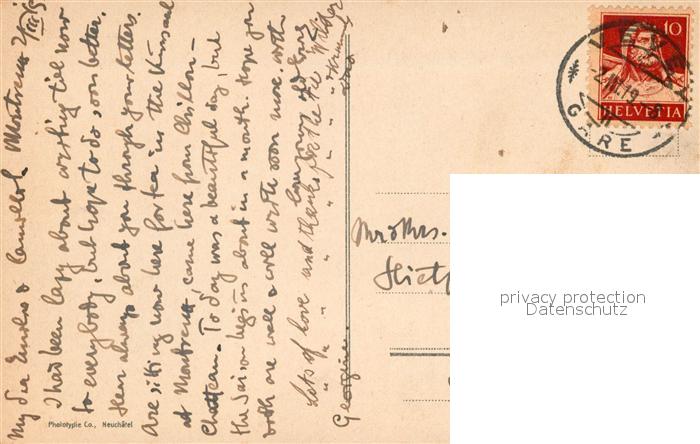 Montreux 2/III 19
My dear & 
I had been lazy about writing till now
to everybody, but hope to do soon better.
Hear always about you through your letters.
Are sitting now here for tea in the Kursaal
at Montreux, came here from Chillon-
Chateau. To day was a beautiful day, but
the Saison begins about in a month. Hope you
both are well & will write soon more. with
Lots of love and thanks for the
Georgine.
Phototypie Co., Neuchâtel
Mr & Mrs.
10
HELVETIA
VEVEY
GARE
privacy protection
Datenschutz